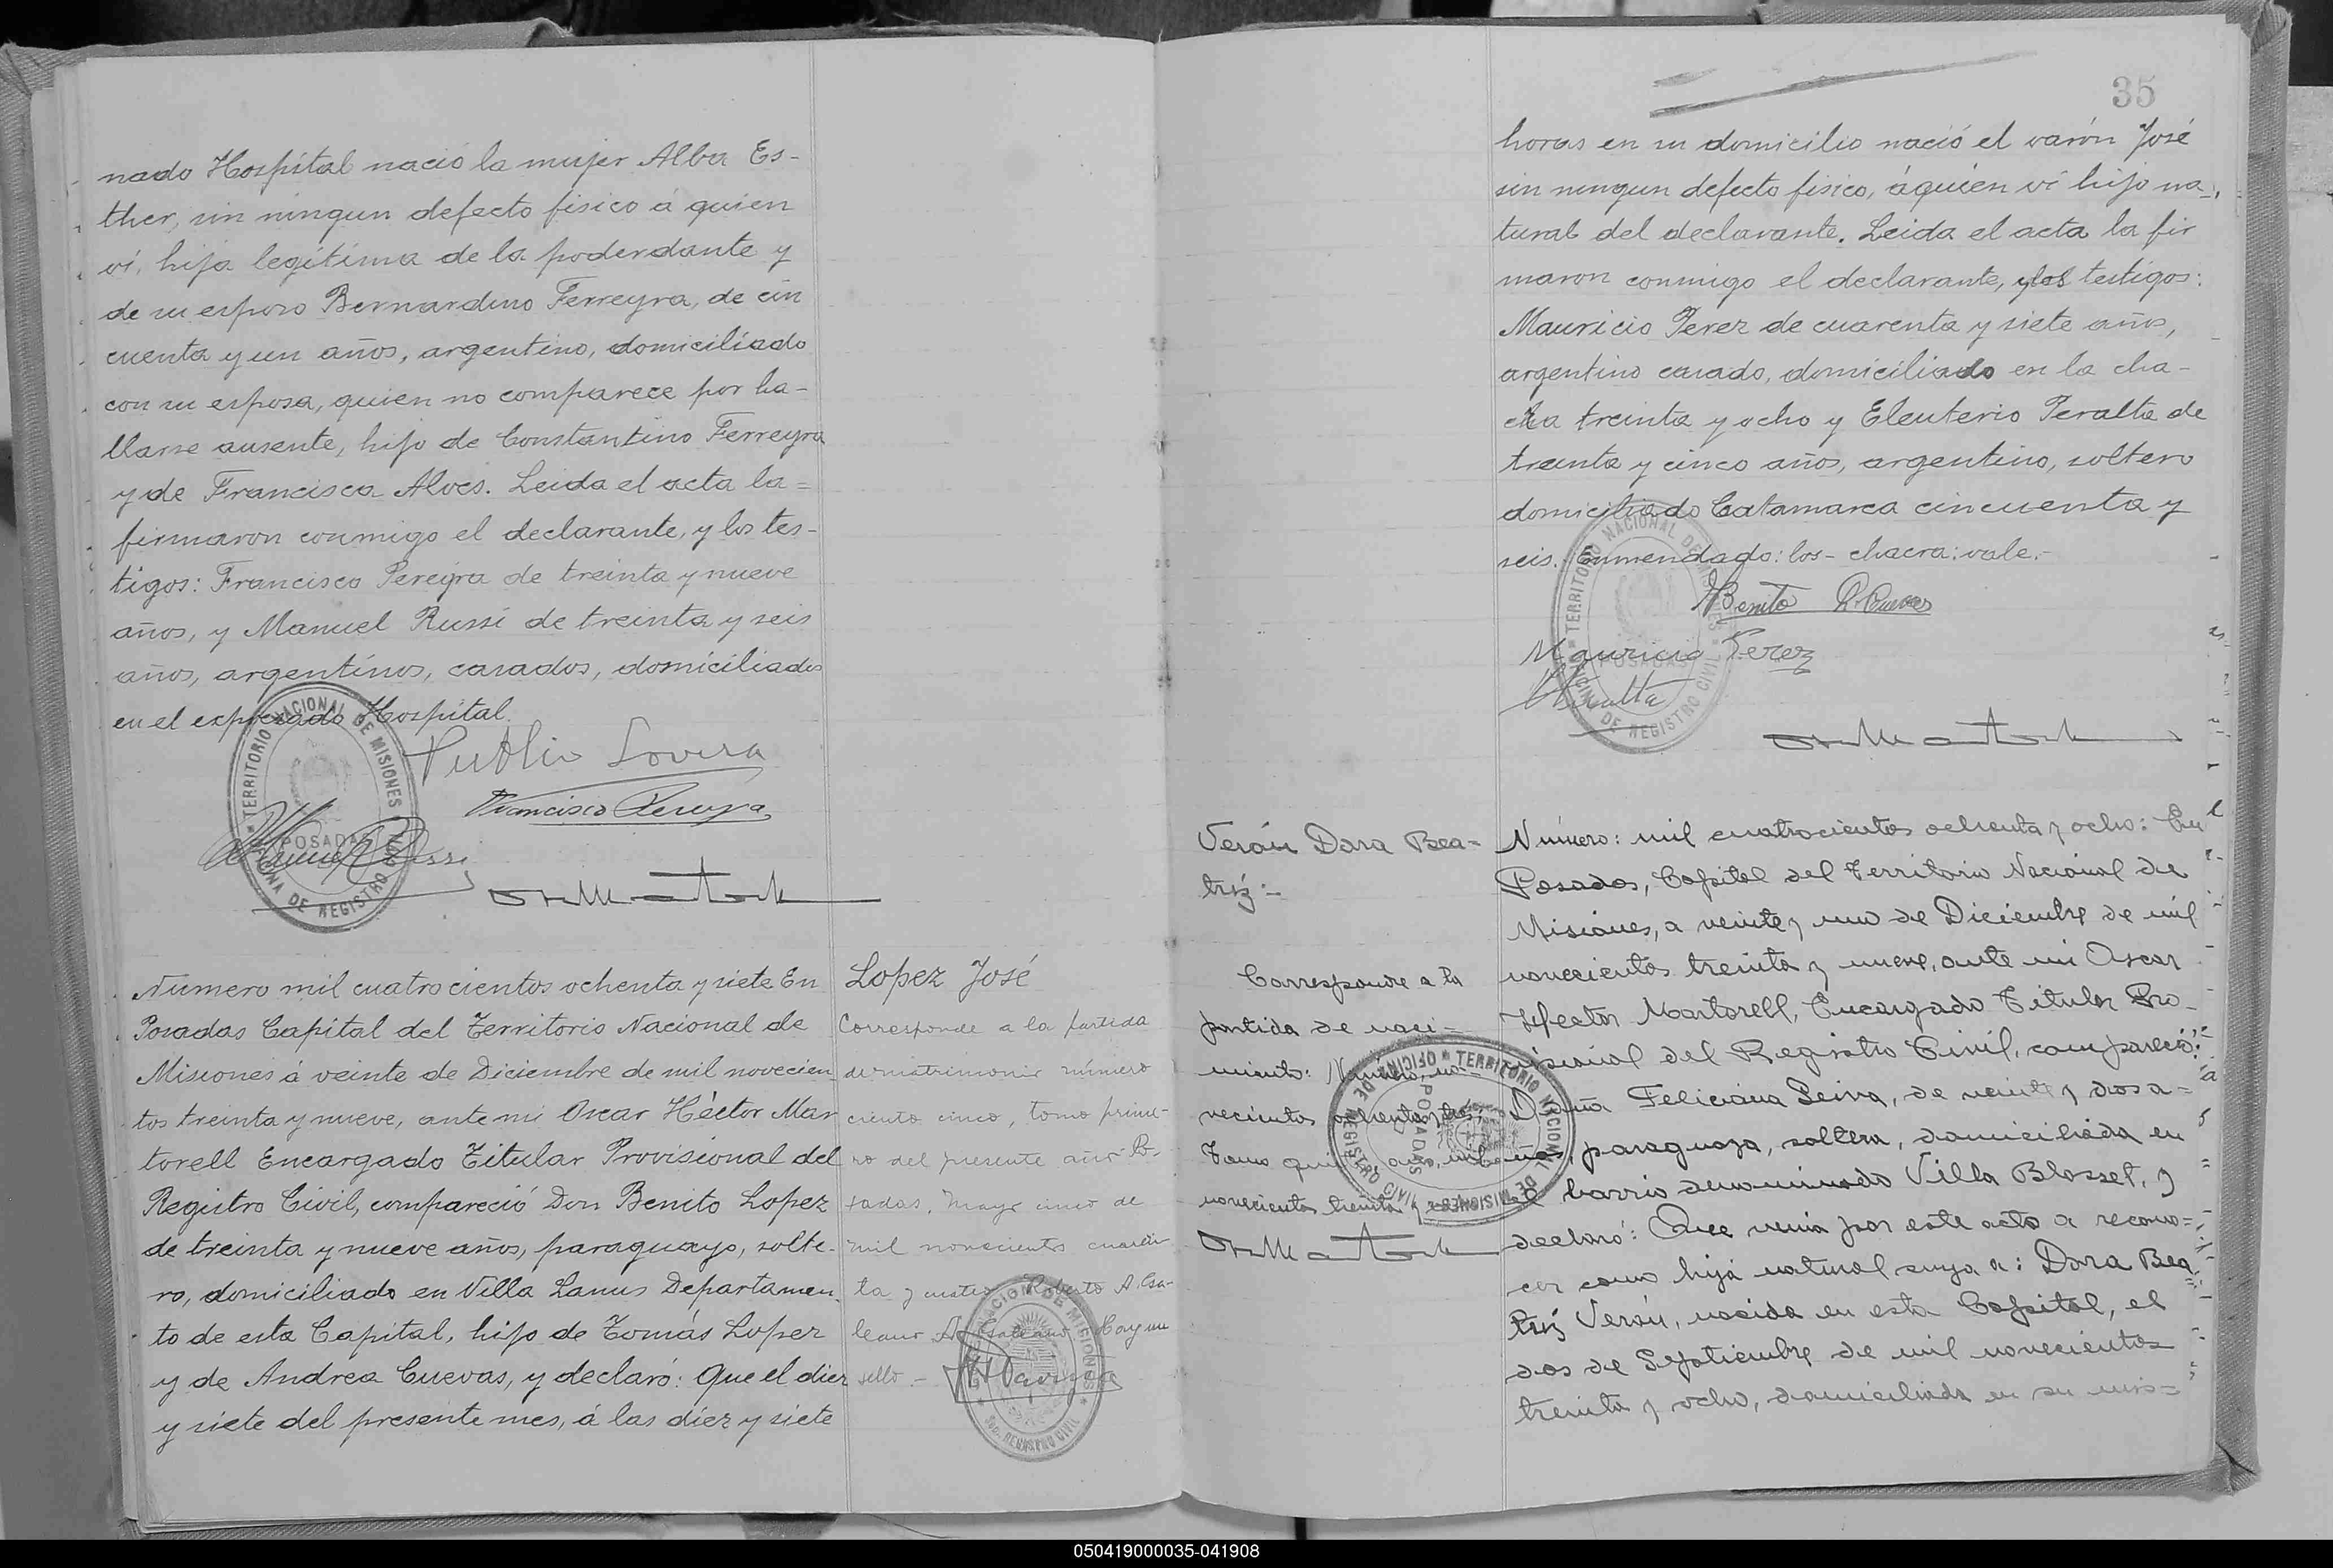 nado Hospital nació la mujer Alba Es-
ther, sin ningun defecto fisico á quien
ví, hija legítima de la poderdante y
de su esposo Bernardino Ferreyra, de cin
cuenta y un años, argentino, domiciliado
con su esposa, quien no comparece por ha-
llarse ausente, hijo de Constantino Ferreyra
y de Francisca Alves. Leida el acta la=
firmaron conmigo el declarante, y los tes-
tigos: Francisco Pereyra de treinta y nueve
años, y Manuel Russi de treinta y seis
años, argentinos, casados, domiciliados
en el expresado Hospital.
Publio Lovera
Francisco Pereyra
Manuel Russi
TERRITORIO NACIONAL DE MISIONES
POSADAS
OFICINA DE REGISTRO CIVIL
Numero mil cuatrocientos ochenta y siete En
Posadas Capital del Territorio Nacional de
Misiones á veinte de Diciembre de mil novecien
tos treinta y nueve, ante mi Oscar Héctor Mar
torell Encargado Titular Provisional del
Registro Civil, compareció Don Benito Lopez
de treinta y nueve años, paraguayo, solte-
ro, domiciliado en Villa Lanus Departamen-
to de esta Capital, hijo de Tomás Lopez
y de Andrea Cuevas, y declaró: Que el diez
y siete del presente mes, á las diez y siete
Lopez José
Corresponde a la partida
de matrimonio número
ciento cinco, tomo prime-
ro del presente año Po-
sadas, Mayo cinco de
mil novecientos cuaren
ta y cuatro Roberto A. Ga-
leano Hay un
sello.-
35
horas en su domicilio nació el varón José
sin ningun defecto fisico, á quien ví hijo na-
tural del declarante. Leida el acta la fir
maron conmigo el declarante, y los testigos:
Mauricio Perez de cuarenta y siete años,
argentino casado, domiciliado en la cha-
cra treinta y ocho y Eleuterio Peralta de
treinta y cinco años, argentino, soltero
domiciliado Catamarca cincuenta y
seis. enmendado: los- chacra: vale.-
Benito L. Cuevas
Mauricio Perez
Peralta
TERRITORIO NACIONAL DE MISIONES
POSADAS
OFICINA DE REGISTRO CIVIL
Verón Dora Bea-
triz:-
Corresponde a la
partida de naci-
miento: Número, no-
vecientos ochenta y tres,
Tomo quinto, año, mil
novecientos treinta y
TERRITORIO NACIONAL DE MISIONES
POSADAS
OFICINA DE REGISTRO CIVIL
Número: mil cuatrocientos ochenta y ocho: En
Posadas, Capital del Territorio Nacional de
Misiones, a veinte y uno de Diciembre de mil
novecientos treinta y nueve, ante mi Oscar
Hector Martorell, Encargado Titular Pro-
visional del Registro Civil, compareció:
Doña Feliciana Leiva, de veinte y dos a-
ños, paraguaya, soltera, domiciliada en
el barrio denominado Villa Blosset, y
declaró: Que venia por este acto a recono=
cer como hija natural suya a: Dora Bea
triz Verón, nacida en esta Capital, el
dos de Septiembre de mil novecientos
treinta y ocho, domiciliada en su mis=
050419000035-041908